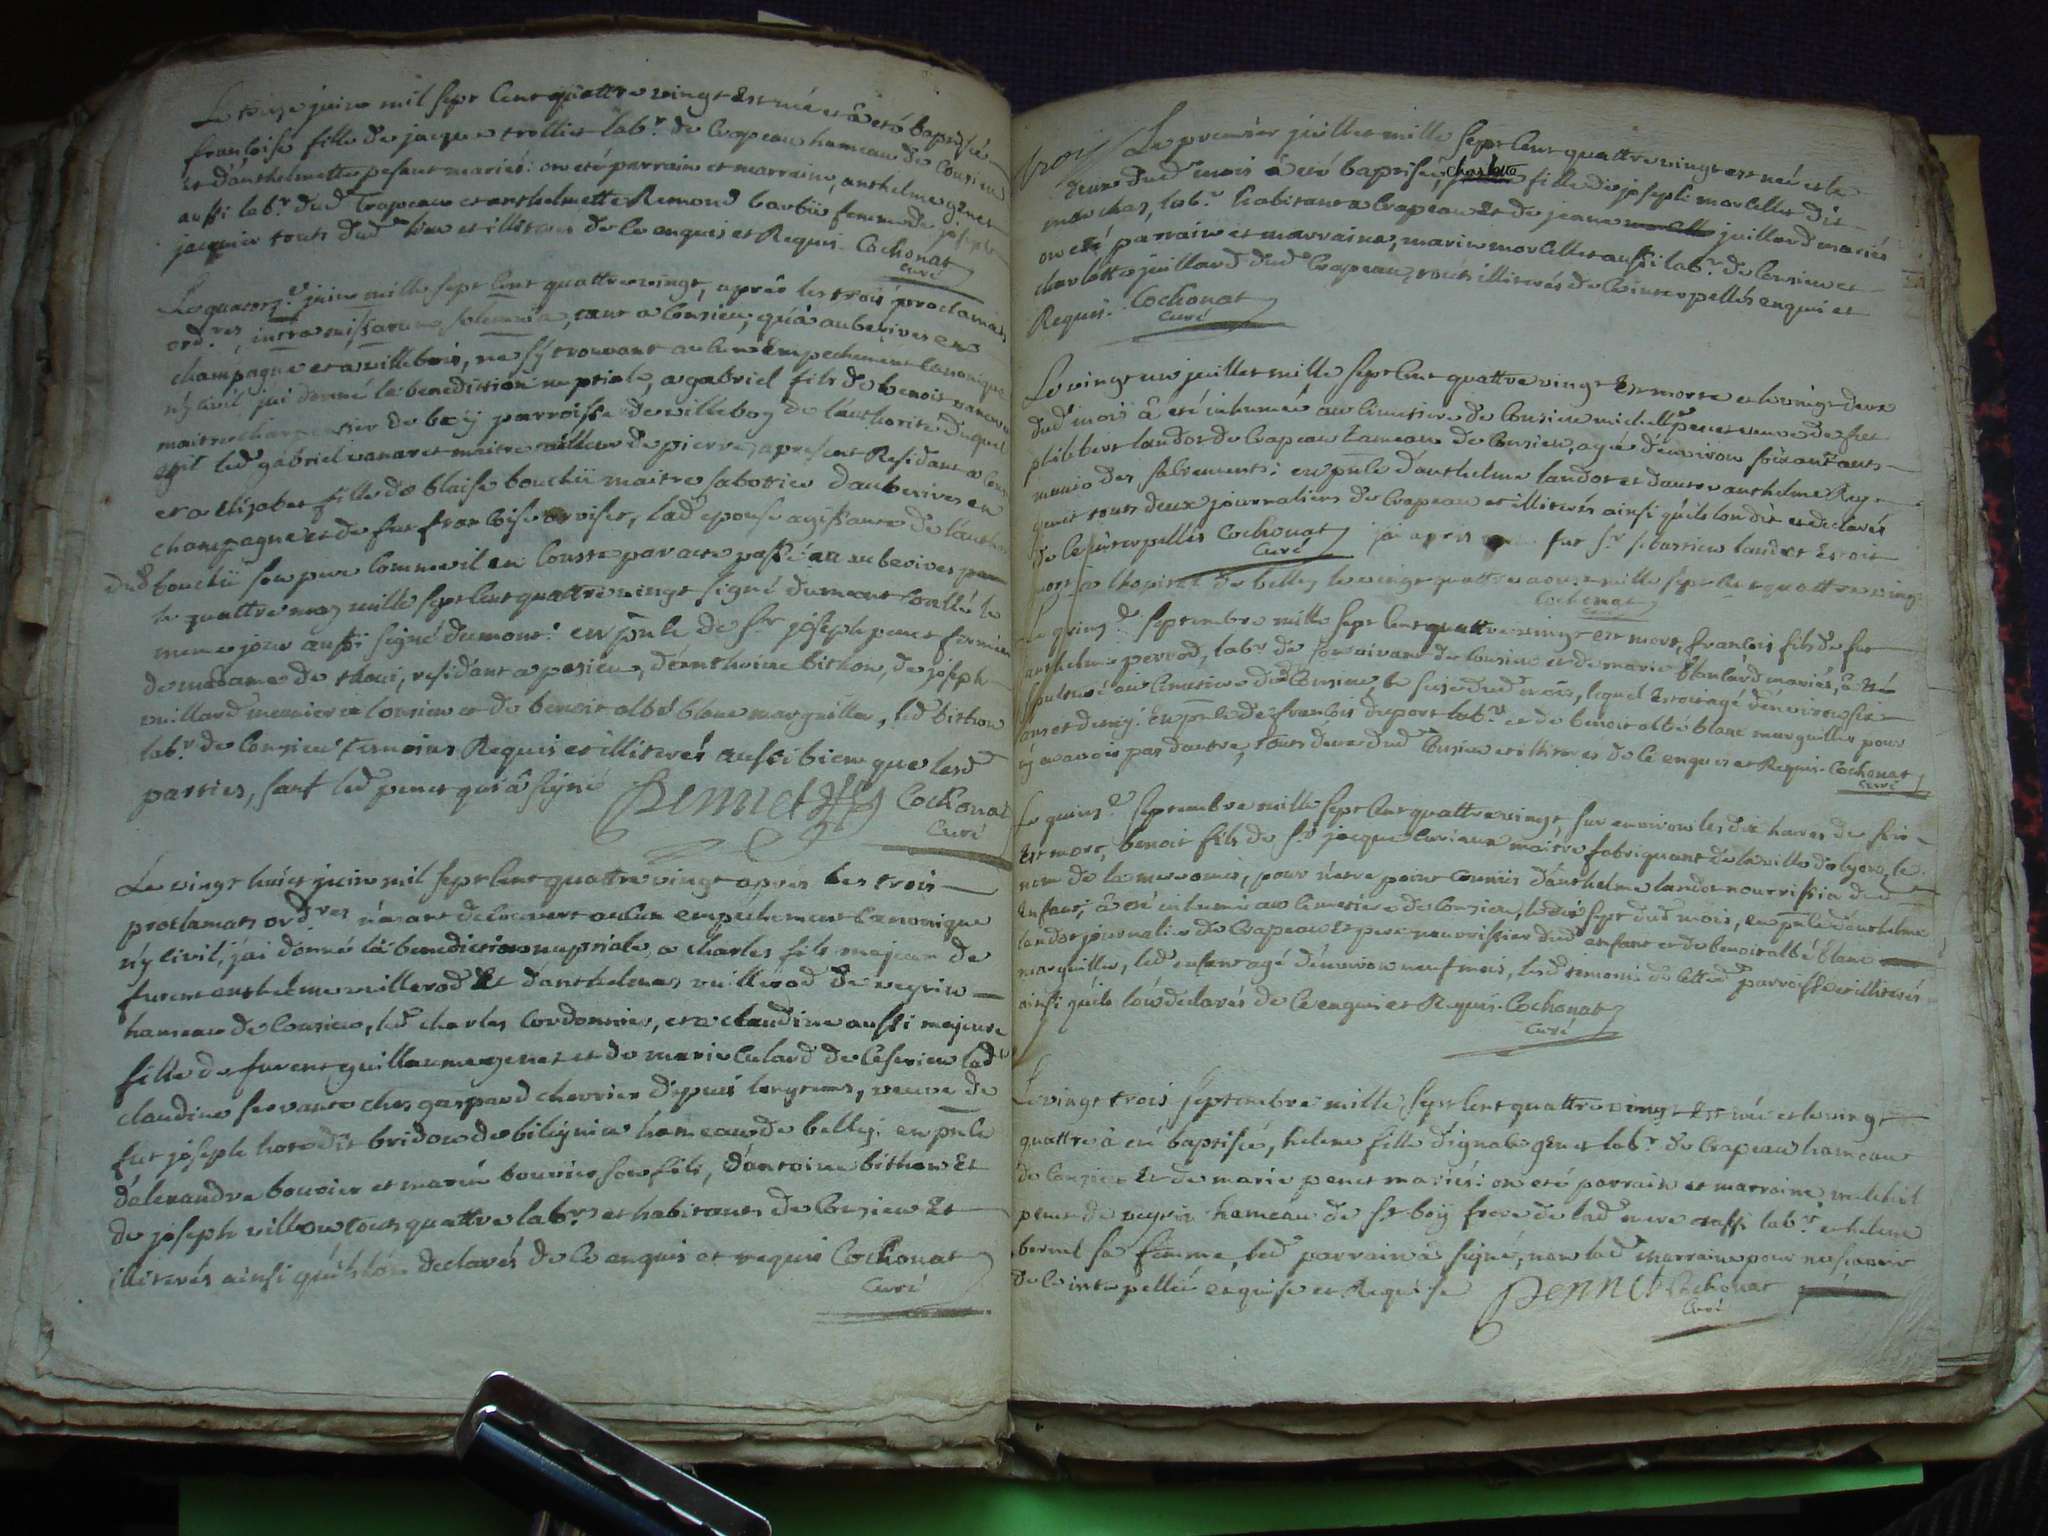 Le treize juin mil sept cent quattre vingt est née et a été baptisée
francoise fille de jacque trollier labr. de Crapeau hameau de Consieu
et d'anthelmette pesant mariés: on eté parrain et marraine, anthelme genet
aussi labr. dud Crapeau et anthelmette Remond femme de joseph
jacquin touts dud lieu et illiterés de ce enquis et Requis. Cochonat
curé
Le quatorze juin mille sept cent quattre vingt, après les trois proclamats
ordres, intra missarum solemnia, tant a Consieu, qu'a auberives en
champagne et a villebois, ne s'y trouvant aucun Empechement canonique
n'y civil, j'ai donné la benediction nuptiale, a gabriel fils de benoit vanaret
maitre charpentier de parroisse de villeboy de l'authorité duquel
agit led gabriel vanaret maitre tailleur de pierre, a present Residant a Cons
et a Elizabet fille de blaise bouchü maitre sabotier d'auberives en
champagne et de fut francoise, lad epouse agissante de l'auth
dud bouchü son pere comme il en Conste par acte passé au auberives
le quattre may mille sept cent quattre vingt signé dumont Conllé le
meme jour aussi signé dumont: en pnce de Sr joseph penet fermier
de madame de residant a pesieu, d'anthoine bithon, de joseph
vuillard meunier a Consieu et de benoit albé blanc marguillier, led bithon
labr de Consieu temoins Requis et illiterés aussi bien que lesd
parties, sauf led penet qui a signé Pennet Cochonat
Curé
Le vingt huict juin mil sept cent quattre vingt après les trois
proclamats ordres n'ayant decouvert aucun empechement Canonique
n'y civil, j'ai donné la benediction nuptiale, a charles fils majeur de
furent anthelme vuillerod Et d'anthelma vuillerod de veyrin
hameau de Consieu, led charles Cordonnier, et a claudine aussi majeure
fille de furent guillaume genet et de marie Culard de Ceserieu lad
claudine servante chez gaspard chevrier depuis longtems, veuve de
fut joseph dit bridon de bilignin hameau de belley: en pnce
d'alexandre bouvier et marin bouvier son fils, d'antoine bithon Et
de joseph touts quattre labrs et habitants de Consieu Et
illiterés ainsi qu'ils l'on declarés de ce enquis et requis Cochonat
Curé
Le premier juillet mille sept cent quattre vingt est née et le
deux dud mois a été baptisée, charlotte fille de joseph morcellet dit
marchas, labr. habitant a Crapeau Et de jeanne juillard mariés
on eté parrain et marraine, marin morcellet aussi labr. de Consieu et
charlotte juillard dud Crapeau, touts illiterés de ce interpellés enquis et
Requis. Cochonat
curé
Le vingt un juillet mille sept cent quattre vingt Est morte et le vingt deux
dud mois a eté inhumée au Cimetiere de Consieu michelle penet veuve de fut
philibert landot de Crapeau hameau de Consieu, agée d'environ soixant ans
munie des sacrements: en pnce d'anthelme landot et d'autre anthelme
touts deux journaliers de Crapeau et illiterés ainsi qu'ils l'on dit et declarés
de ce interpellés Cochonat j'ai apris fut Sr sebastien landot Est
Curé
mort a lhopital de belley le vingt quattre aoust mille sept cent quattre vingt
Cochonat
curé
Le quinze septembre mille sept cent quattre vingt est mort, francois fils de fut
anthelme perrod, labr de son vivant de Consieu et de marie blanlard mariés, a eté
sepulturé au Cimetiere dud Consieu le seize dud mois, lequel étoit agé d'environ six
ans et demÿ: En pnce de francois deport labr. et de benoit albé blanc marguillier pour
n'y avoir pas d'autre, touts deux dud Consieu et illiterés de ce enquis et Requis. Cochonat
curé
Le quinze septembre mille sept cent quattre vingt sur environ les dix heures de soir
Est mort, benoit fils de Sr jacque maitre fabriquant de la ville de lyon, le
nom de la mere omis, pour n'etre point connüe d'anthelme landot nourrissier dud
Enfant, a eté inhumé au Cimetiere de Consieu, le dix sept dud mois, en pnce d'anthelme
landot journalier de Crapeau Et pere nourrissier dud enfant et de benoit albé blanc
marguillier, led enfant agé d'environ neuf mois, lesd temoins de cette parroisse et illiterés
ainsi qu'ils l'on declarés de ce enquis et Requis. Cochonat
Curé
Le vingt trois septembre mille sept cent quattre vingt est née et le vingt
quattre a eté baptisée, helene fille d'ignace genet labr. de Crapeau hameau
de Consieu Et de marie penet mariés: on eté parrain et marraine melchiol
penet de veyrin hameau de St boÿ frere de lad mere aussi labr. et helene
sa femme, led parrain a signé, non lad marraine pour ne scavoir
de ce interpellée enquise et Requise Pennet Cochonat
Curé